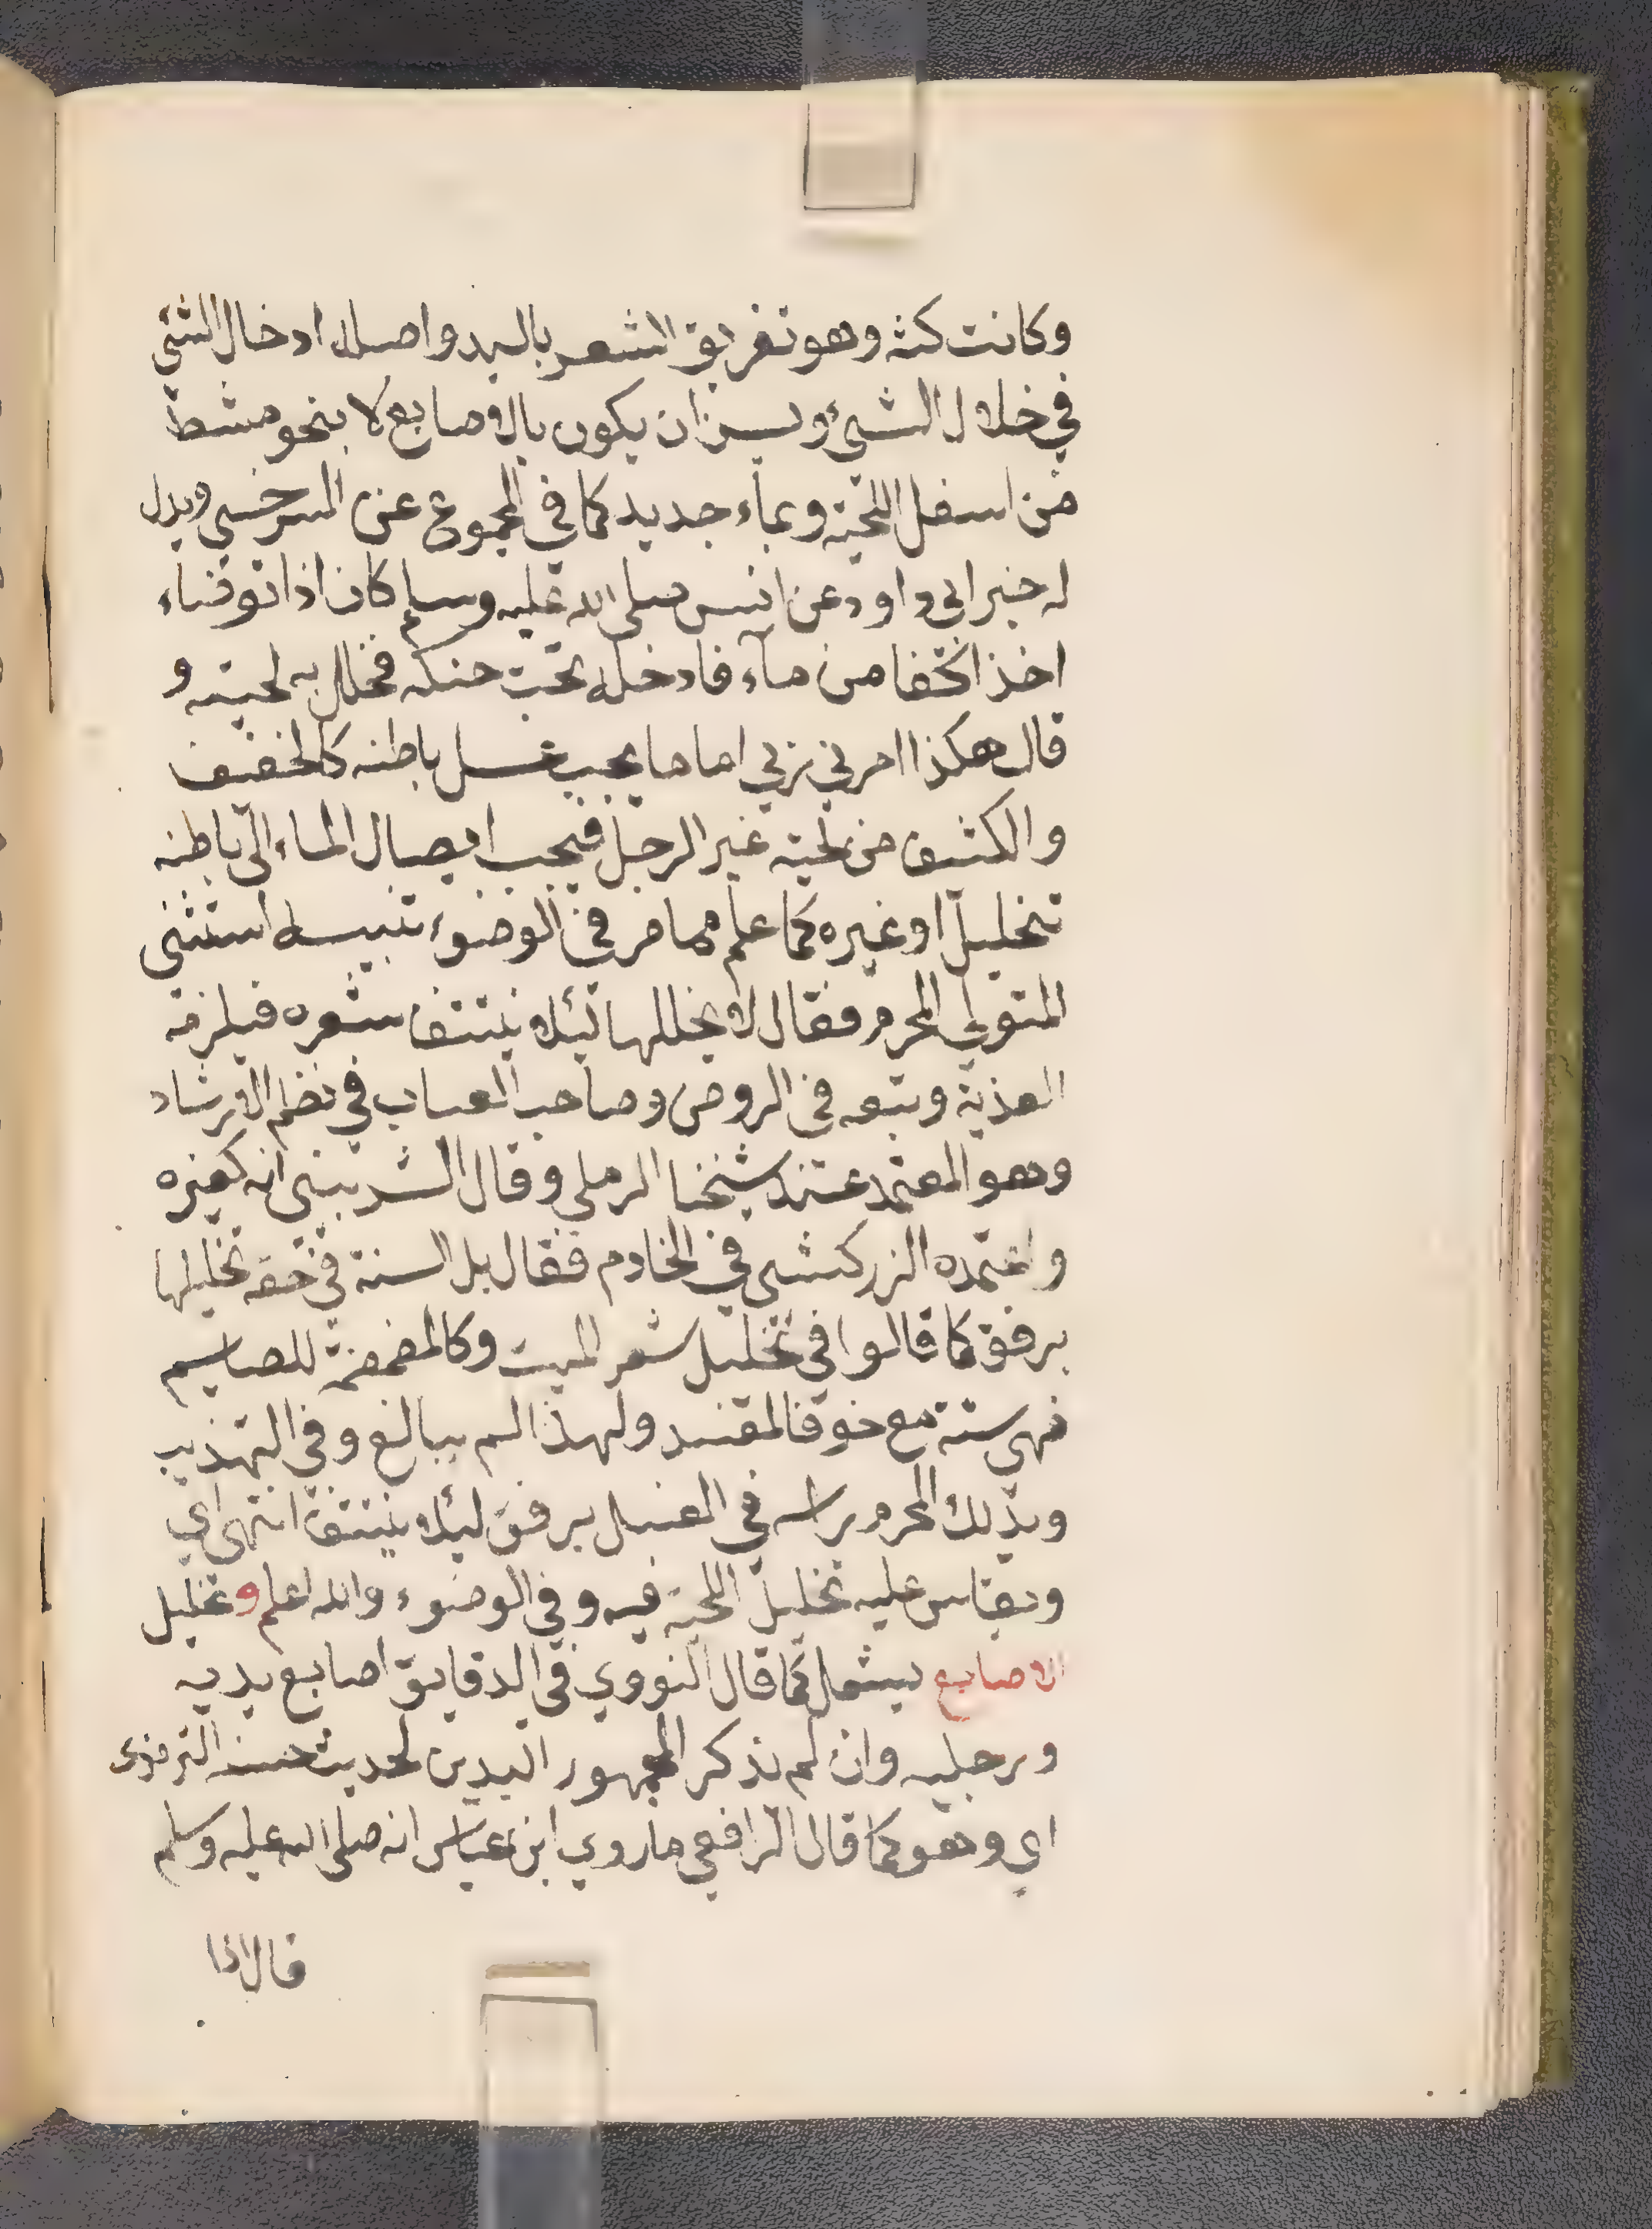 وكانت كثه وهو تفريق الشعر باليد واصله ادخال الشئ
في خلال الشئ ويسن ان يكون بالاصابع لا بنحو مشط
من اسفل اللحية وبماء جديد كما في المجموع عن السرخسي ويدل
له خبر ابي داود عن انس صلى الله عليه وسلم كان اذا توضاء
اخذ اكفا من ماء فادخله تحت حنكه فخلل به لحيته و
قال هكذا امرني ربي اما ما يجب غسل باطنه كالخفيف
والكثيف من لحية غير الرجل فيجب ايصال الماء الى باطنه
بتخليل او غيره كما علم مما مر في الوضوء تنبيه استثنى
المتولي المحرم فقال لا يخللها لئلا ينتتف شعره فيلزمه
الفدية وتبعه في الروض وصاحب العباب في نظم الارشاد
وهو المعتمد عند شيخنا الرملي وقال الشربيني انه كغيره
واعتمده الزركشي في الخادم فقال بل السنة في حقه تخليلها
برفق كما قالوا في تخليل شعر الميت وكالمضمضة للصايم
فهي سنة مع خوف المفسد ولهذا لم يبالغ وفي التهذيب
ويدلك المحرم راسه في الغسل برفق لئلا ينتتف انتهى اي
ويقاس عليه تخليل اللحية فيه وفي الوضوء والله اعلم وتخليل
الاصابع يشمل كما قال النووي في الدقايق اصابع يديه
ورجليه وان لم يذكر الجمهور اليدين لحديث حسنه الترمذي
اي وهو كما قال الرافعي ما روي ابن عباس انه صلى الله عليه وسلم
قال اذا